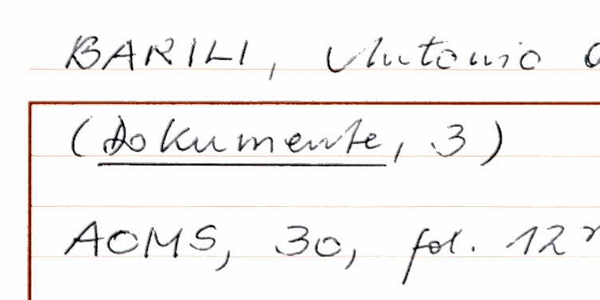 BARILI, Antonio
(Dokumente, 3)
AOMS, 30, fol. 12r